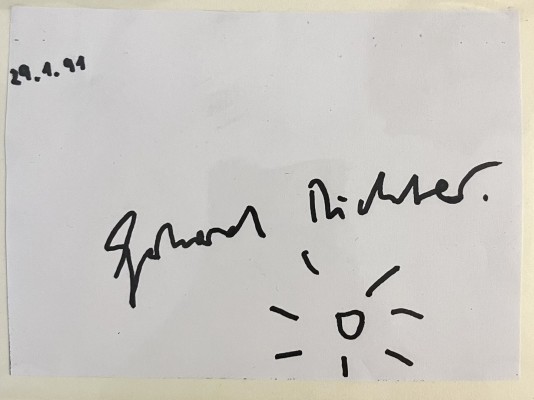 29.1.91
Gerhard Richter.